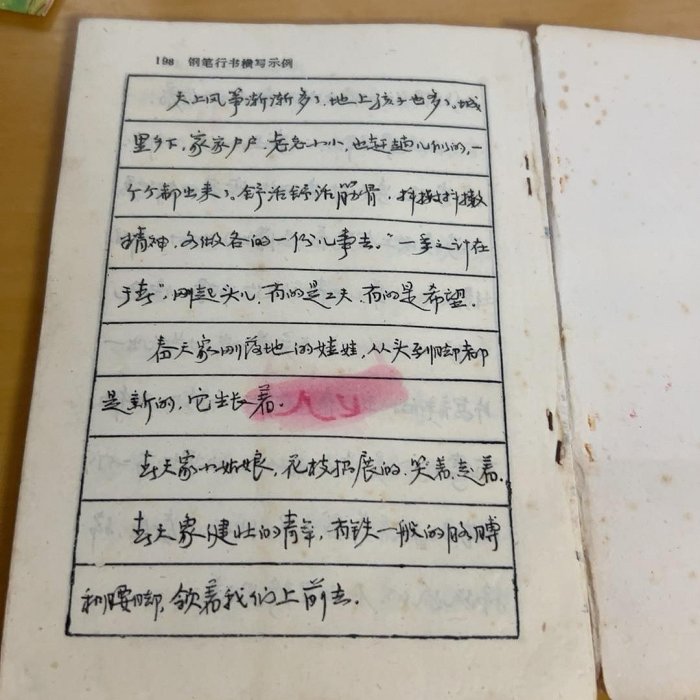 198 钢笔行书横写示例
天上风筝渐渐多了,地上孩子也多了。城
里乡下,家家户户,老老小小,也赶趟儿似的,一
个个都出来了。舒活舒活筋骨,抖擞抖擞
精神,各做各的一份儿事去。“一年之计在
于春”,刚起头儿,有的是工夫,有的是希望。
春天象刚落地的娃娃,从头到脚都
是新的,它生长着。
春天象小姑娘,花枝招展的,笑着,走着。
春天象健壮的青年,有铁一般的胳膊
和腰脚,领着我们上前去。